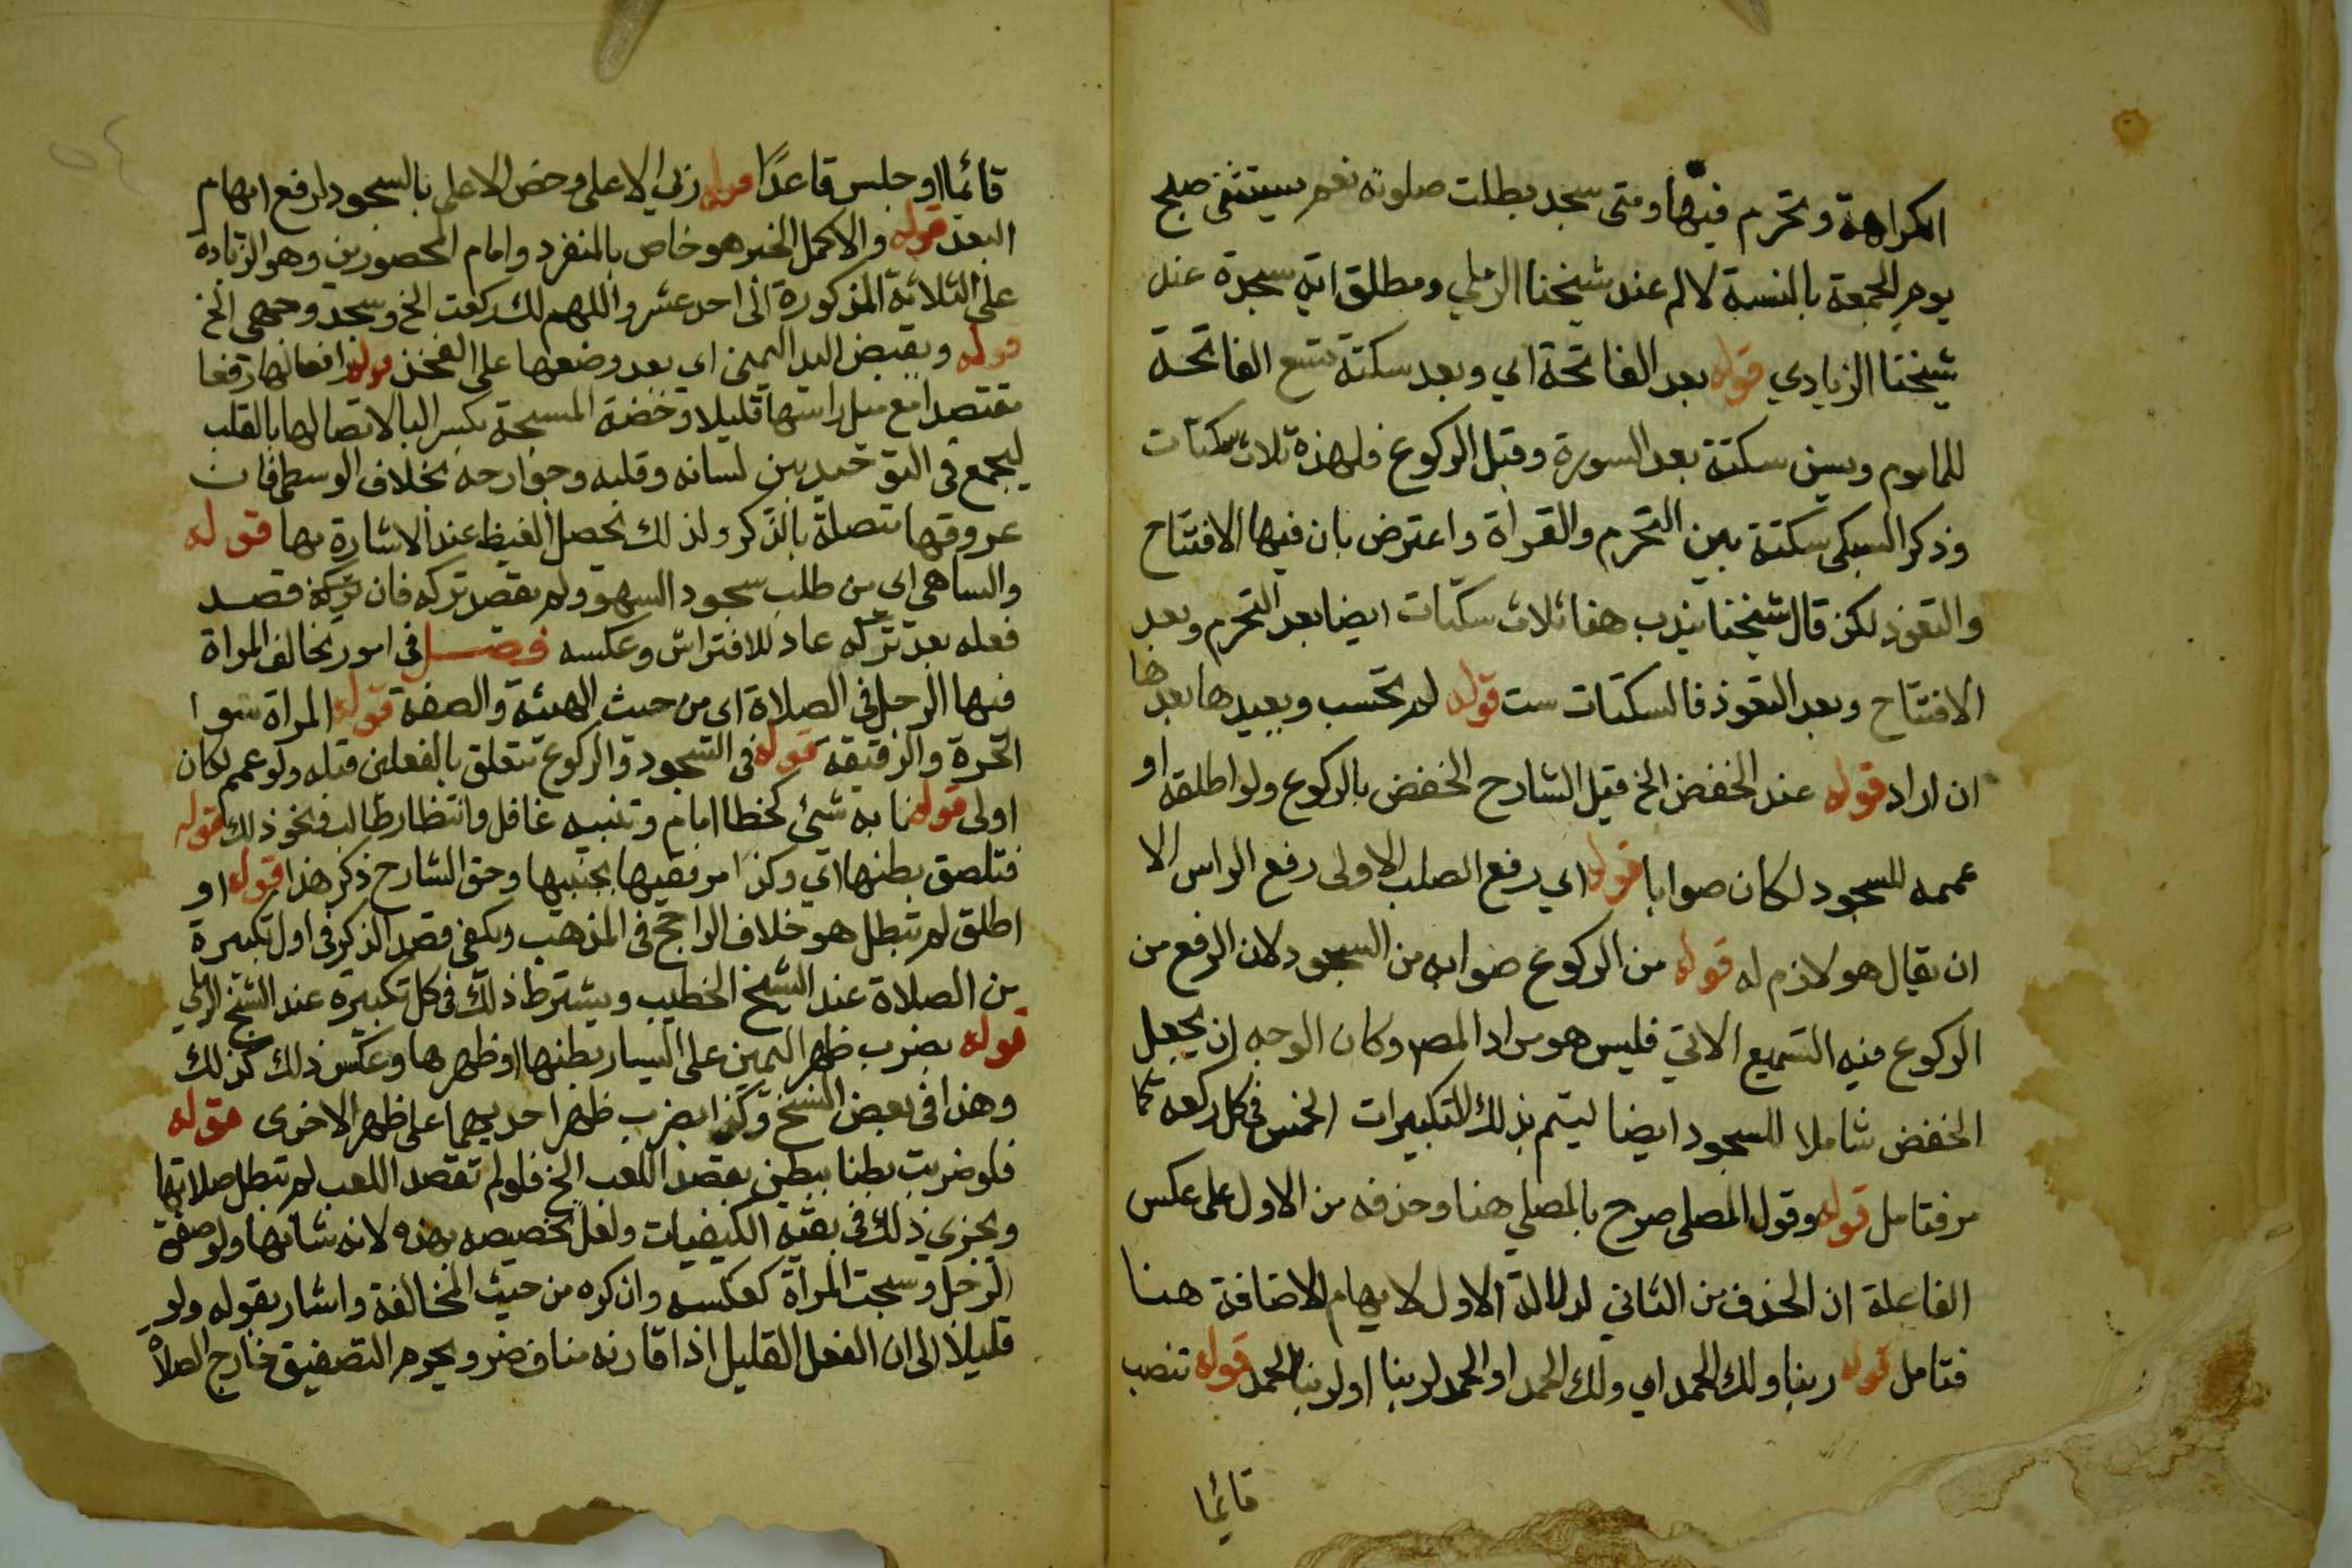 الكراهة وتحرم فيها ومتى سجد بطلت صلوته نعم يستثنى صبح
يوم الجمعة بالنسبة لالم عند شيخنا الرملي ومطلق اية سجدة عند
شيخنا الزيادي قوله بعد الفاتحة اي وبعد سكتة تسع الفاتحة
للماموم ويسن سكتة بعد السورة وقبل الركوع فلهذه ثلاث سكتات
وذكر السبكي سكتة بين التحرم والقراة واعترض بان فيها الافتتاح
والتعوذ لكن قال شيخنا يندب هنا ثلاث سكتات ايضا بعد التحرم وبعد
الافتتاح وبعد التعوذ فالسكتات ست قوله لم تحتسب ويعيدها بعدها
ان اراد قوله عند الخفض الخ قيل الشارح الخفض بالركوع ولو اطلقه او
عممه للسجود لكان صوابا قوله اي رفع الصلب الاولى رفع الراس الا
ان يقال هو لازم له قوله من الركوع صوابه من السجود لان الرفع من
الركوع فيه التسميع الاتي فليس هو مراد المصم وكان الوجه ان يجعل
الخفض شاملا للسجود ايضا ليتم بذلك التكبيرات الخمس في كل ركعة كما
مر فتامل قوله وقول المصلي صرح بالمصلي هنا وحذفه من الاول على عكس
الفاعلة ان الحذف من الثاني لدلالة الاول لايهام الاضافة هنا
فتامل قوله ربنا ولك الحمد اي ولك الحمد او الحمد لربنا او لربنا الحمد قوله تنصب
قائما
قائما او جلس قاعدا قوله ربي الاعلى وخص الاعلى بالسجود لرفع ايهام
البعد قوله والاكمل الخبر هو خاص بالمنفرد وامام المحصورين وهو الزيادة
على الثلاثة المذكورة الى احد عشر واللهم لك ركعت الخ وسجد وجهي الخ
قوله ويقبض اليد اليمنى اي بعد وضعها على الفخذ قوله رافعا لها رفعا
مقتصدا مع ميل راسها قليلا وخصة المسبحة بكسر البا لاتصالها بالقلب
ليجمع في التوحيد بين لسانه وقلبه وجوارحه بخلاف الوسطى فان
عروقها متصلة بالذكر ولذلك تحصل الغيظ عند الاشارة بها قوله
والساهي اي من طلب سجود السهو ولم يقصد تركه فان تركه قصد
فعله بعد تركه عاد للافتراش وعكسه فصل في امور تخالف المراة
فيها الرجل في الصلاة اي من حيث الهيئة والصفة قوله المراة سوا
الحرة والرقيقة قوله في السجود والركوع تتعلق بالفعلين قبله ولو عمم لكان
اولى قوله نابه شئ كخطا امام وتنبيه غافل وانتظار طالب ونحو ذلك قوله
فتلصق بطنها اي وكذا مرفقيها بجنبيها وحق الشارح ذكر هذا قوله او
اطلق لم تبطل هو خلاف الراجح في المذهب ويكفي قصد الذكر في اول تكبيرة
من الصلاة عند الشيخ الخطيب ويشترط ذلك في كل تكبيرة عند الشيخ الرملي
قوله بضرب ظهر اليمين على اليسار بطنها او ظهرها وعكس ذلك كذلك
وهذا في بعض النسخ وكذا بضرب ظهر احديهما على ظهر الاخرى قوله
فلو ضربت بطنا ببطن بقصد اللعب الخ فلو لم تقصد اللعب لم تبطل صلاتها
ويجري ذلك في بقية الكيفيات ولعل تخصيصه بهذه لانه شانها ولو صفق
الرجل وسبحت المراة كعكسه وان كره من حيث المخالفة واشار بقوله ولو
قليلا الى ان الفعل القليل اذا قارنه مناف ضر ويحرم التصفيق خارج الصلاة